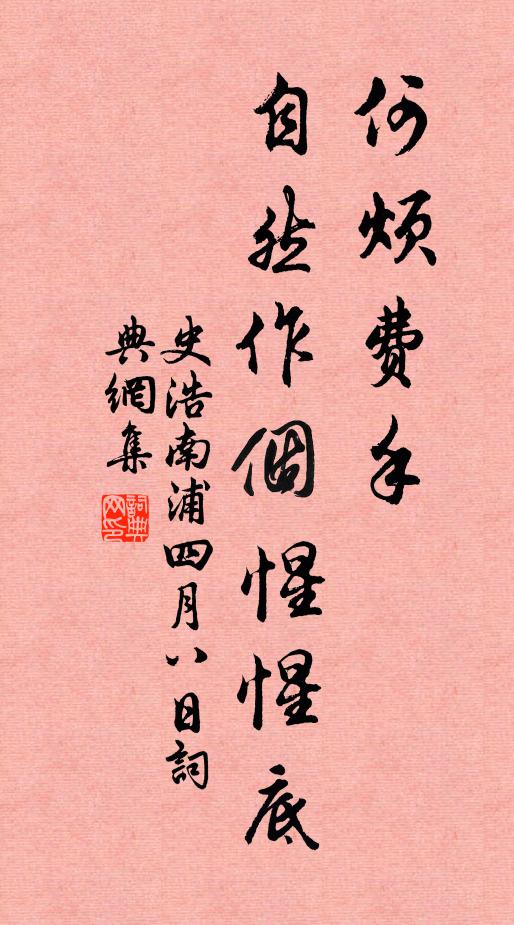 何烦费手
自然作個惺惺底
史浩南浦四月八日詞
典網集
詞典
网印